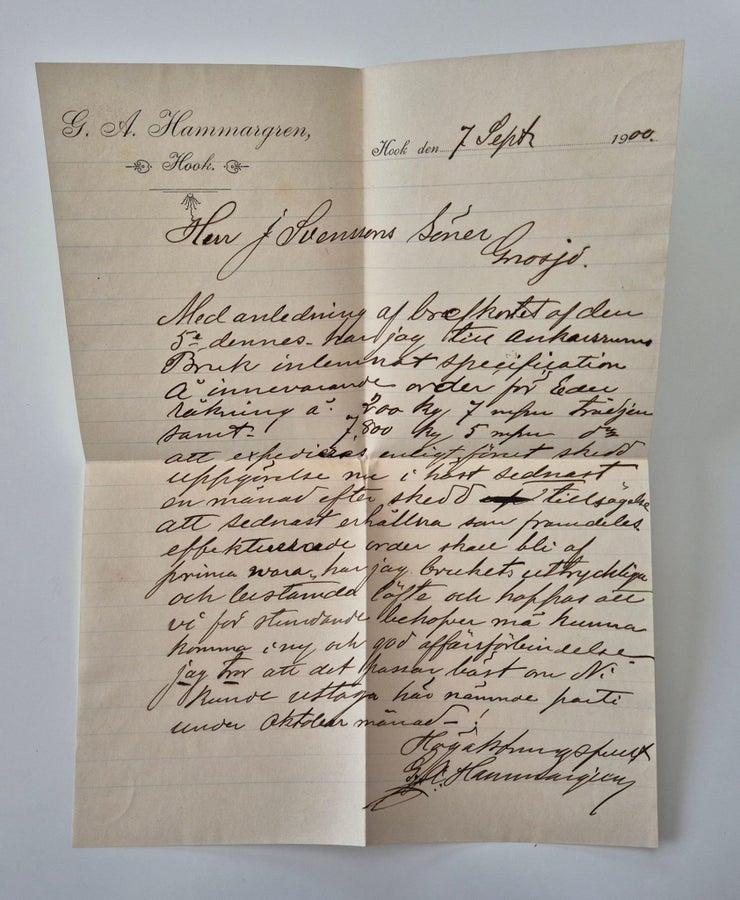 G. A. Hammargren,
Hook.
Hook den 7 Sept 1900.
Herr J Svenssons Söner
Gnosjö.
Med anledning af brefkortet af den
5e dennes har jag till Ankarsrums
Bruk inlemnat specification
å innevarande order för Eder
räkning å. 200 kg 7 mpm
samt 7,800 kg 5 mpm do
att expedieras enligt förut skedd
uppgörelse nu i höst sednast
en månad efter skedd tillsägelse
att sednast erhållna som framdeles
effektuerade order skall bli af
prima vara, har jag brukets uttryckliga
och bestämda löfte och hoppas att
vi för stundande behofver må kunna
komma i ny och god affärsförbindelse
jag tror att det passar bäst om Ni
kunde uttaga här nämnde parti
under Oktober månad !
Högaktningsfullt
G.A. Hammargren